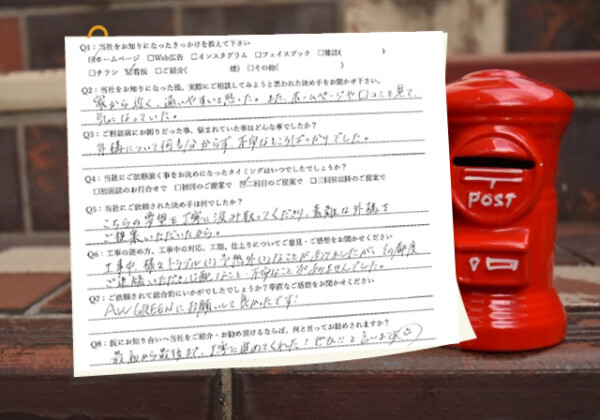 Q1：当社をお知りになったきっかけを教えて下さい
☑ホームページ □Web広告 □インスタグラム □フェイスブック □雑誌( )
□チラシ ☑看板 □ご紹介( 様) □その他( )
Q2：当社をお知りになった後、実際にご相談してみようと思われた決め手をお聞かせ下さい。
家から近く、通いやすいと思った。また、ホームページや口コミを見て、
気になっていた。
Q3：ご相談前にお困りだった事、悩まれていた事はどんな事でしたか？
外構について何も分からず、不安なところばかりでした。
Q4：当社にご依頼頂く事をお決めになったタイミングはいつでしたでしょうか？
□初回面談のお打合せで □初回のご提案で ☑二回目のご提案で □三回目以降のご提案で
Q5：当社にご依頼された決め手は何でしたか？
こちらの要望を丁寧に汲み取ってくださり、素敵な外構を
ご提案いただいたから。
Q6：工事の進め方、工事中の対応、工期、仕上りについてご意見・ご感想をお聞かせください
工事中、様々トラブル(?)予想外(?)なことがありましたが、その都度
ご連絡いただき、心配なこと・不安なことがありませんでした。
Q7：ご依頼されて総合的にいかがでしたでしょうか？率直なご感想をお聞かせください
AW GREENにお願いして良かったです！
Q8：仮にお知り合いへ当社をご紹介・お勧め頂けるならば、何と言ってお勧めされますか？
最初から最後まで、丁寧に進めてくれた！ぜひ!!と言います
POST